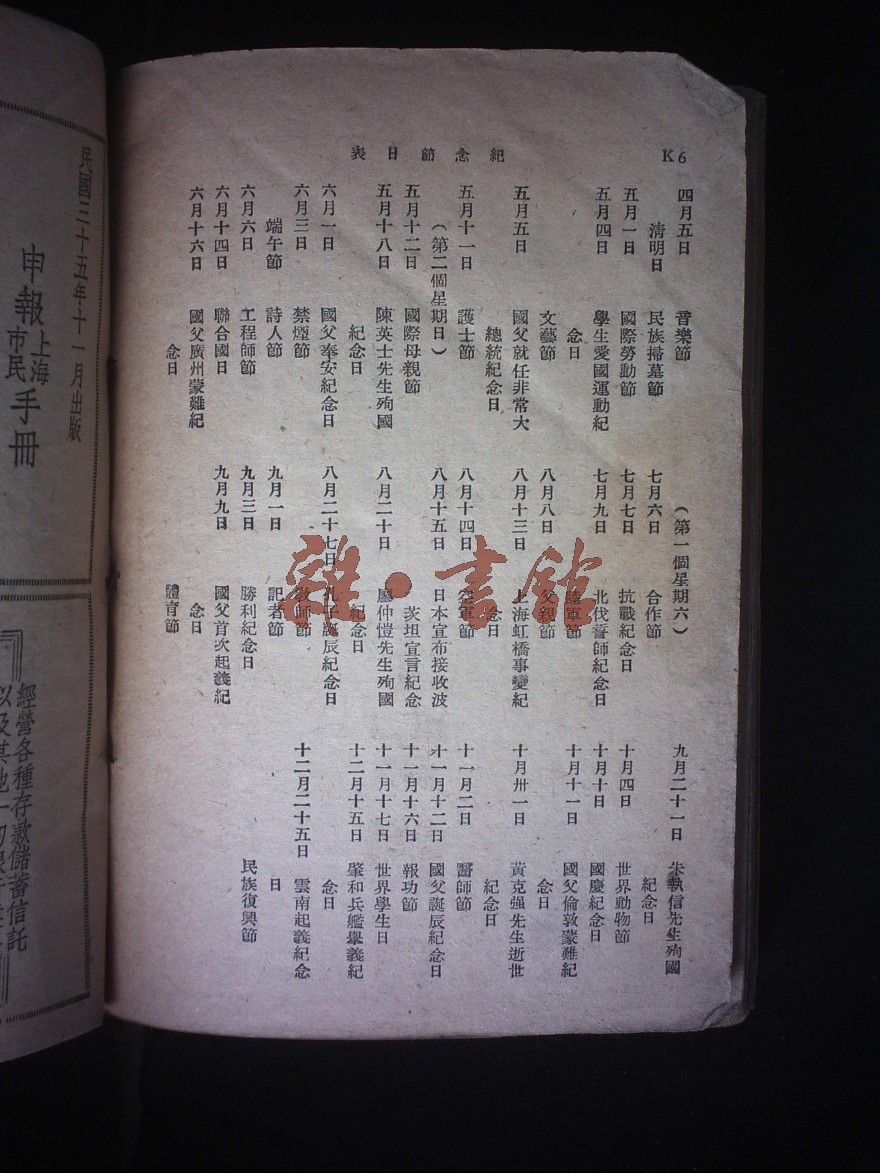 K6
紀念節日表
四月五日 音樂節
清明日 民族掃墓節
五月一日 國際勞動節
五月四日 學生愛國運動紀
念日
文藝節
五月五日 國父就任非常大
總統紀念日
五月十一日 護士節
（第二個星期日）
五月十二日 國際母親節
五月十八日 陳英士先生殉國
紀念日
六月一日 國父奉安紀念日
六月三日 禁煙節
端午節 詩人節
六月六日 工程師節
六月十四日 聯合國日
六月十六日 國父廣州蒙難紀
念日
（第一個星期六）
七月六日 合作節
七月七日 抗戰紀念日
七月九日 北伐誓師紀念日
陸軍節
八月八日 父親節
八月十三日 上海虹橋事變紀
念日
八月十四日 空軍節
八月十五日 日本宣布接收波
茨坦宣言紀念
八月二十日 廖仲愷先生殉國
紀念日
八月二十七日 孔子誕辰紀念日
教師節
九月一日 記者節
九月三日 勝利紀念日
九月九日 國父首次起義紀
念日
體育節
九月二十一日 朱執信先生殉國
紀念日
十月四日 世界動物節
十月十日 國慶紀念日
十月十一日 國父倫敦蒙難紀
念日
十月卅一日 黃克强先生逝世
紀念日
十一月二日 醫師節
十一月十二日 國父誕辰紀念日
十一月十六日 報功節
十一月十七日 世界學生日
十二月十五日 肇和兵艦舉義紀
念日
十二月二十五日 雲南起義紀念
日
民族復興節
民國三十五年十一月出版
申報上海市民手冊
經營各種存款儲蓄信託
以及其他一切銀行
雜·書館